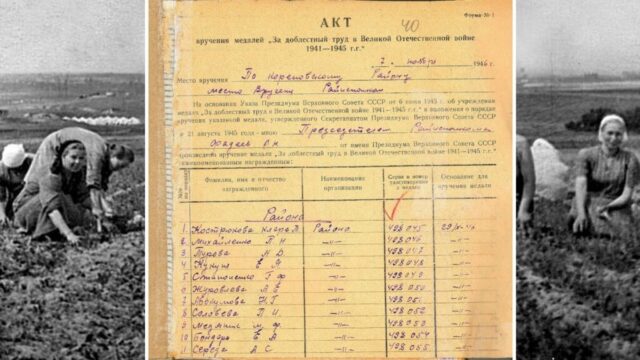 Форма-№ 1
АКТ
40
вручения медалей „За доблестный труд в Великой Отечественной войне
1941—1945 г.г.“
7. ноября 1946 г.
Место вручения По Кореновскому Району
место вручения Райисполком
На основании Указа Президиума Верховного Совета СССР от 6 июня 1945 г. об учреждении
медаль „За доблестный труд в Великой Отечественной войне 1941—1945 г.г.“ и положения о порядке
вручения указанной медали, утвержденного Секретариатом Президиума Верховного Совета СССР
в 21 августа 1945 года—мною Председателем Райисполкома
от имени Президиума Верховного Совета СССР
произведено вручение медали „За доблестный труд в Великой Отечественной войне 1941—1945 г.г.“
нижепоименованным награжденным:
Фамилия, имя и отчество награжденного
Наименование организации
Серия и номер удостоверения к медали
Основание для вручения медали
Района
1. Кострюкова Клара Районо 498045
2 Михайленко П Н —"— 498046 —"—
3 Н Д —"— 498047 —"—
4 —"— 498048 —"—
5 Г Ф —"— 498049 —"—
6 Журавлева —"— 498050 —"—
7 —"— 498051 —"—
8 Соловьева П И —"— 498052 —"—
9 М Ф —"— 498053 —"—
10 Бондарь Е А —"— 498054 —"—
11 Середа А С —"— 498055 —"—